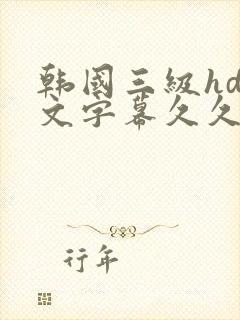 韩國三級hd
文字幕久久
行年